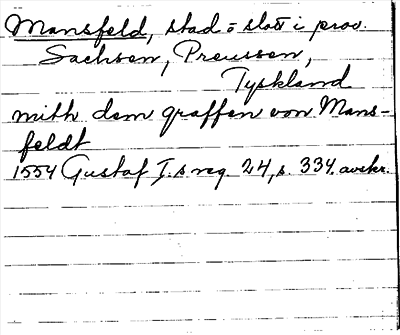 Mansfeld, stad o slott i prov.
Sachsen, Preussen,
Tyskland
mith dem graffen von Mans-
feldt
1554 Gustaf I.s reg. 24, s. 334. avskr.